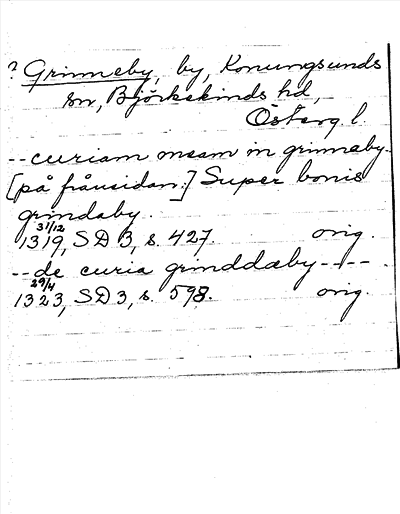 ? Grinneby, by, Konungsunds
sn, Björkekinds hd,
Österg. l.
-- curiam meam in grinneby.
[på frånsidan:] Super bonis
grindaby.
31/12
1319, SD 3, s. 427. orig.
-- de curia grinddæby ----.
29/4
1323, SD 3, s. 598. orig.